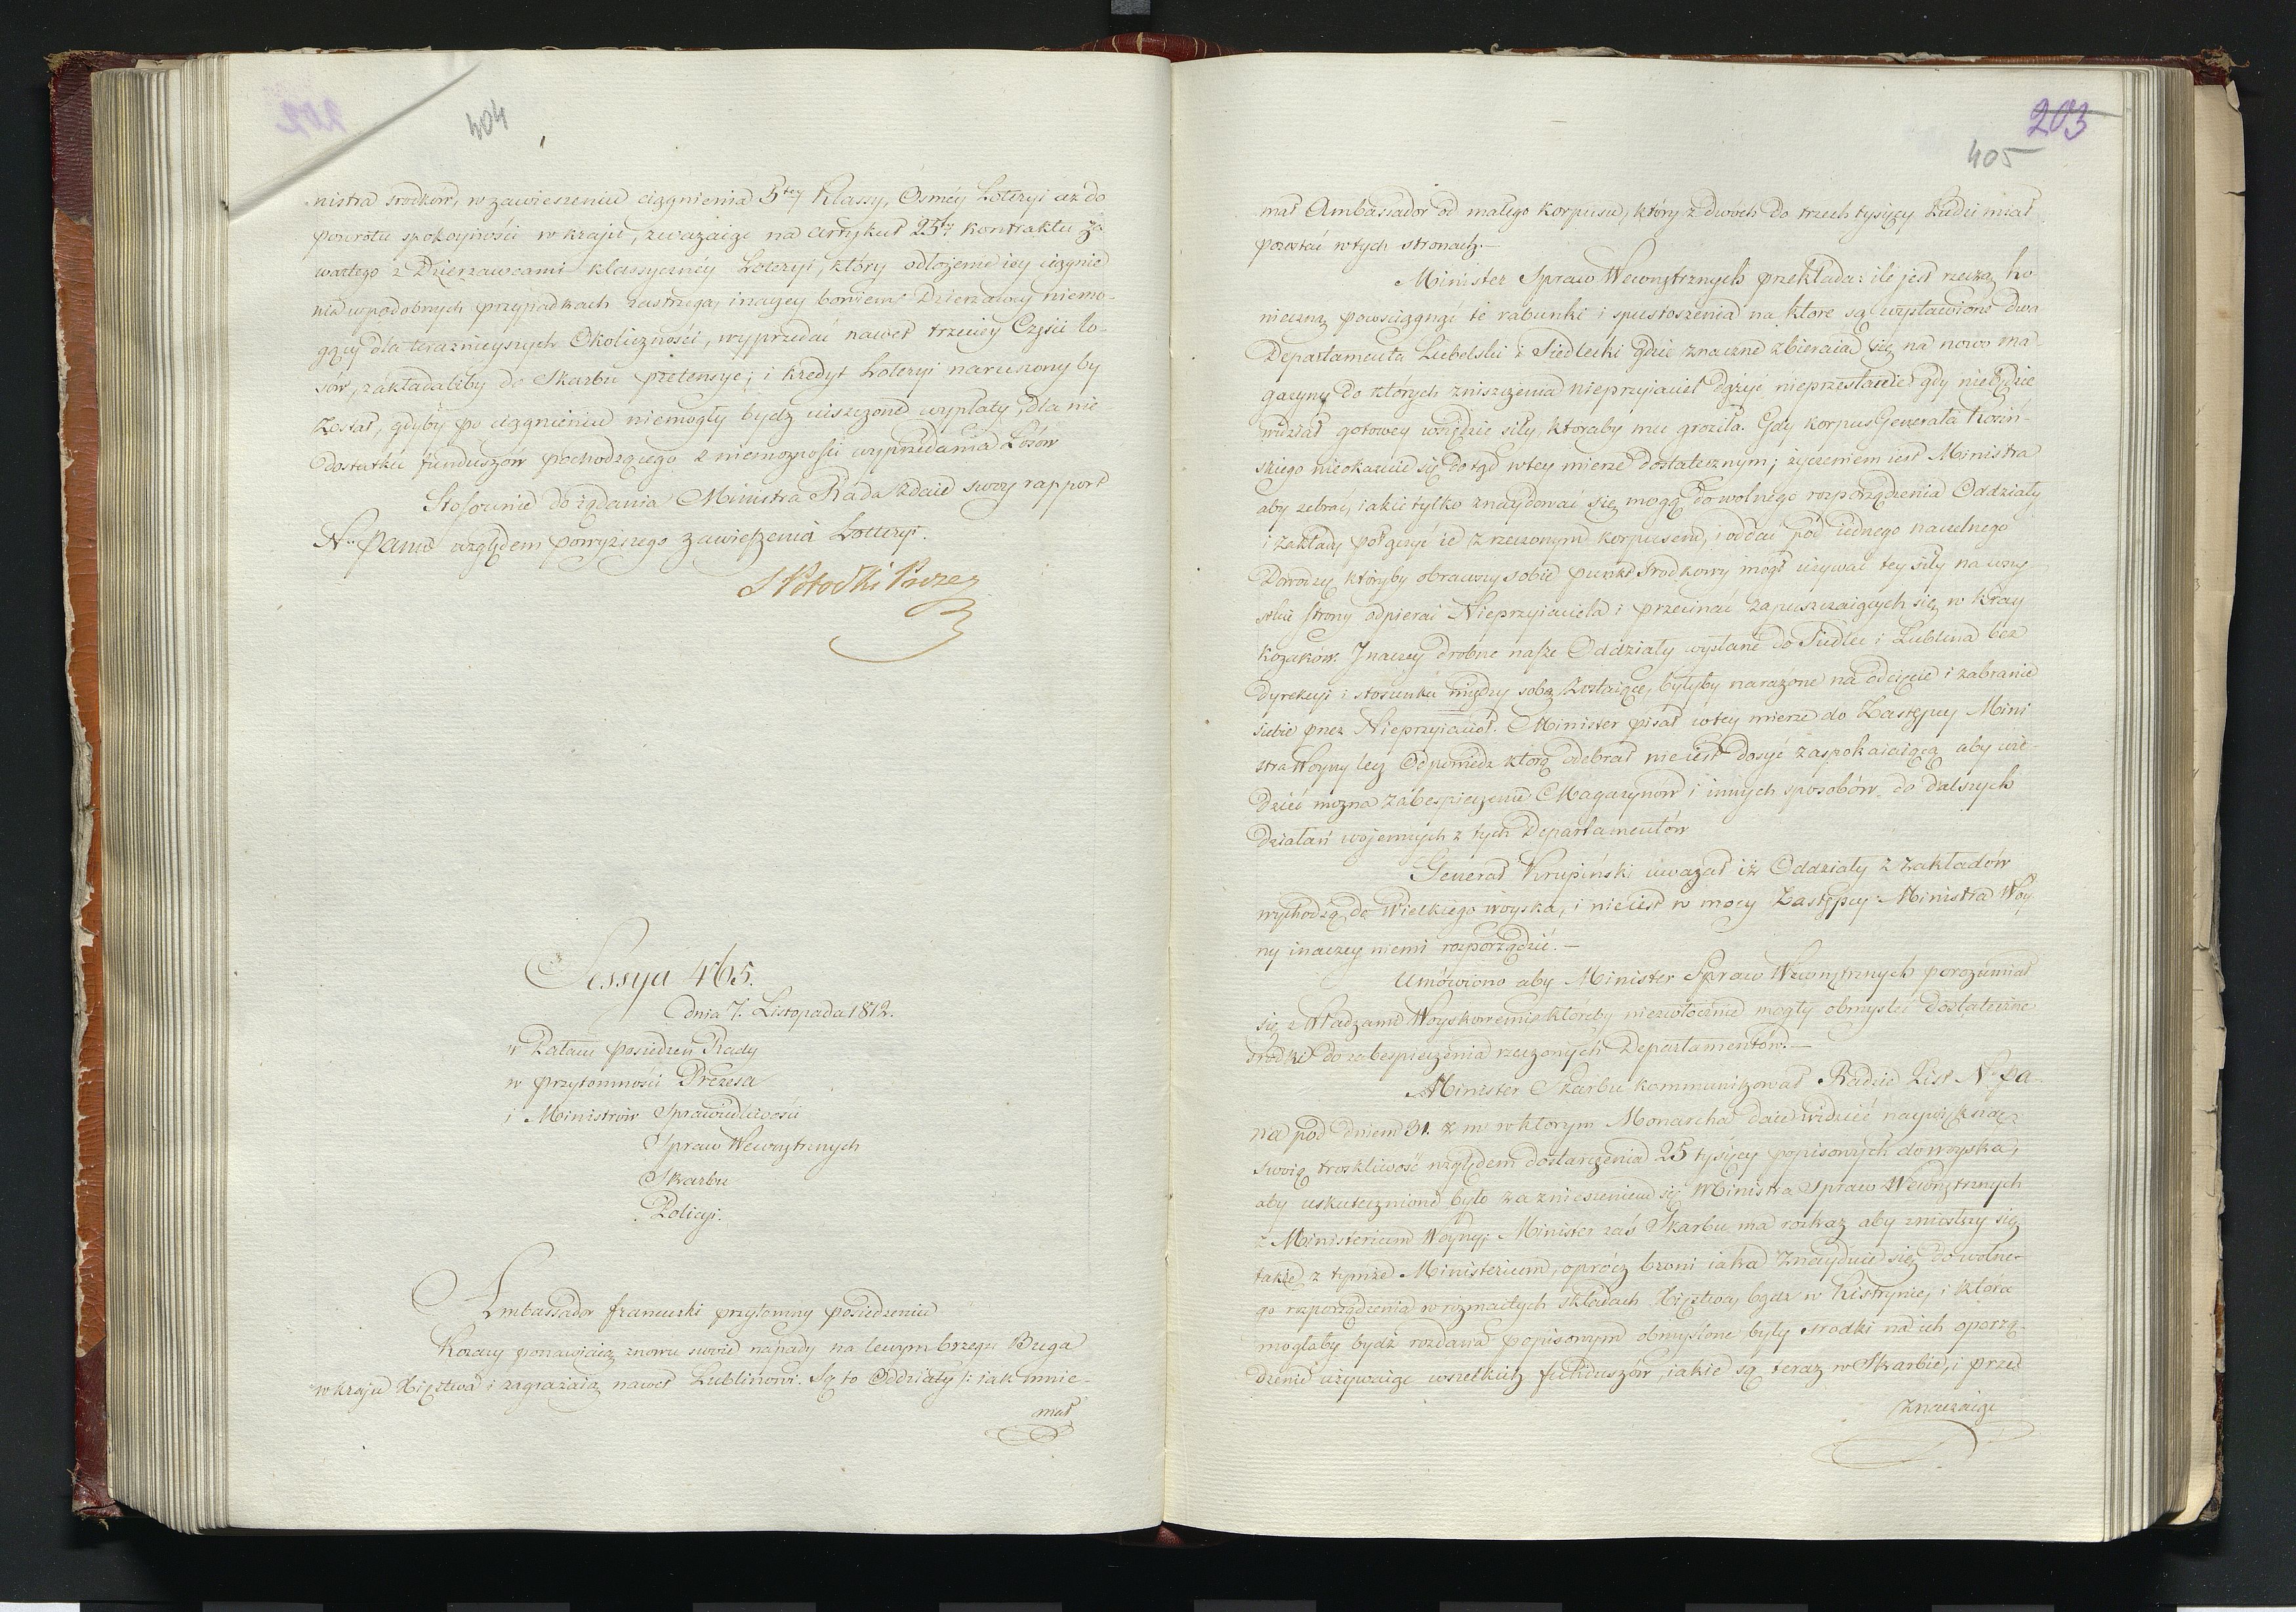 404
nistra srodków, w zawieszeniu ciągnienia 5tey Klassy, Osméy Loteryi aż do
powrotu spokoyności w kraju, zważaiąc na Artykuł 25ty kontraktu za
wartego z Dzierzawcami klassycznéy Loteryi, który odłożenie iey ciągnie
nia w podobnych przypadkach zastrzega, inaczey bowiem Dzierzawcy niemo-
gący dla teraznieyszych Okoliczności, wyprzedać nawet trzeciey Części Lo-
sów, zakładaliby do Skarbu pretensye; i kredyt Loteryi naruszony by
został, gdyby po ciągnieniu niemogły bydź uiszczone wypłaty, dla nie
dostatku funduszów pochodzącego z niemożności wyprzedania Losów
Stosownie do żądania Ministra Rada zdaie swoy rapport
N. Panu względem powyższego zawieszenia Lotteryi.
S Potocki Prezes
Sessya 465.
dnia 7. Listopada 1812.
w Pałacu posiedzeń Rady
w przytomności Prezesa
i Ministrów Sprawiedliwości
Spraw Wewnętrznych
Skarbu
Policyi.
Ambassador francuzki przytomny posiedzeniu
Kozacy ponawiaią znowu swoie napady na lewym brzegu Buga
w kraju Xięztwa i zagrażaią nawet Lublinowi. Są to Oddziały /: iak mnie-
mał
203
405
mał Ambassador od małego korpusu, który z dwóch do trzech tysięcy Ludzi miał
pozostać w tych stronach.—
Minister Spraw Wewnętrznych przekłada: ile jest rzeczą ko
nieczną powściągnąć te rabunki i spustoszenia na ktore są wystawione dwa
Departamenta Lubelski i Siedlecki gdzie znaczne zbieraią się na nowo ma-
gazyny do których zniszczenia nieprzyiaciel dążyć nieprzestanie gdy niebędzie
widział gotowey wszędzie siły, ktoraby mu groziła. Gdy korpus Generała Kosiń-
skiego nieokazuie się dotąd w tey mierze dostatecznym; życzeniem iest Ministra
aby zebrać, iakie tylko znaydować się mogą do wolnego rozporządzenia Oddziały
i zakłady połączyć ie z rzeczonym korpusem, i oddać pod iednego naczelnego
Dowodzcę, któryby obrawszy sobie punkt srodkowy mógł używać tey siły na wszy
stkie strony odpierać Nieprzyiaciela i przecinać zapuszczaiących się w kray
kozaków. Inaczey drobne nasze Oddziały wysłane do Siedlec i Lublina bez
dyrekcyi i stosunku między sobą zostaiące, byłyby narażone na odcięcie i zabranie
siebie przez Nieprzyiaciół. Minister pisał w tey mierze do Zastępcy Mini
stra Woyny lecz Odpowiedz którą odebrał nie iest dosyć zaspokaiaiącą aby wie-
dzieć można zabespieczenie Magazynów i innych sposobów do dalszych
działań wojennych z tych Departamentów
Generał Krupiński uważał iż Oddziały z zakładów
wychodzą do Wielkiego woyska, i nie iest w mocy Zastępcy Ministra Woy
ny inaczey niemi rozporządzić.—
Umówiono aby Minister Spraw Wewnętrznych porozumiał
się z Władzami Woyskowemi któreby niezwłocznie mogły obmyslić dostateczne
srodki do zabespieczenia rzeczonych Departamentów.—
Minister Skarbu kommunikował Radzie List N. Pa-
na pod dniem 31. z. m. w ktorym Monarcha daie widzieć naywiększą
swoię troskliwość względem dostarczenia 25 tysięcy popisowych do woyska,
aby uskutecznione było za zniesieniem się Ministra Spraw Wewnętrznych
z Ministerium Woyny; Minister zaś Skarbu ma rozkaz aby zniosłszy się
także z tymże Ministerium, oprócz broni iaka znayduie się do wolne-
go rozporządzenia w rozmaitych składach Xięztwa, bądz w Kistryniej i ktora
mogłaby bydź rozdana popisowym obmyslone były srodki na ich oporzą-
dzenie używaiąc wszelkich funduszów, iakie są teraz w Skarbie, i prze
znaczaiąc